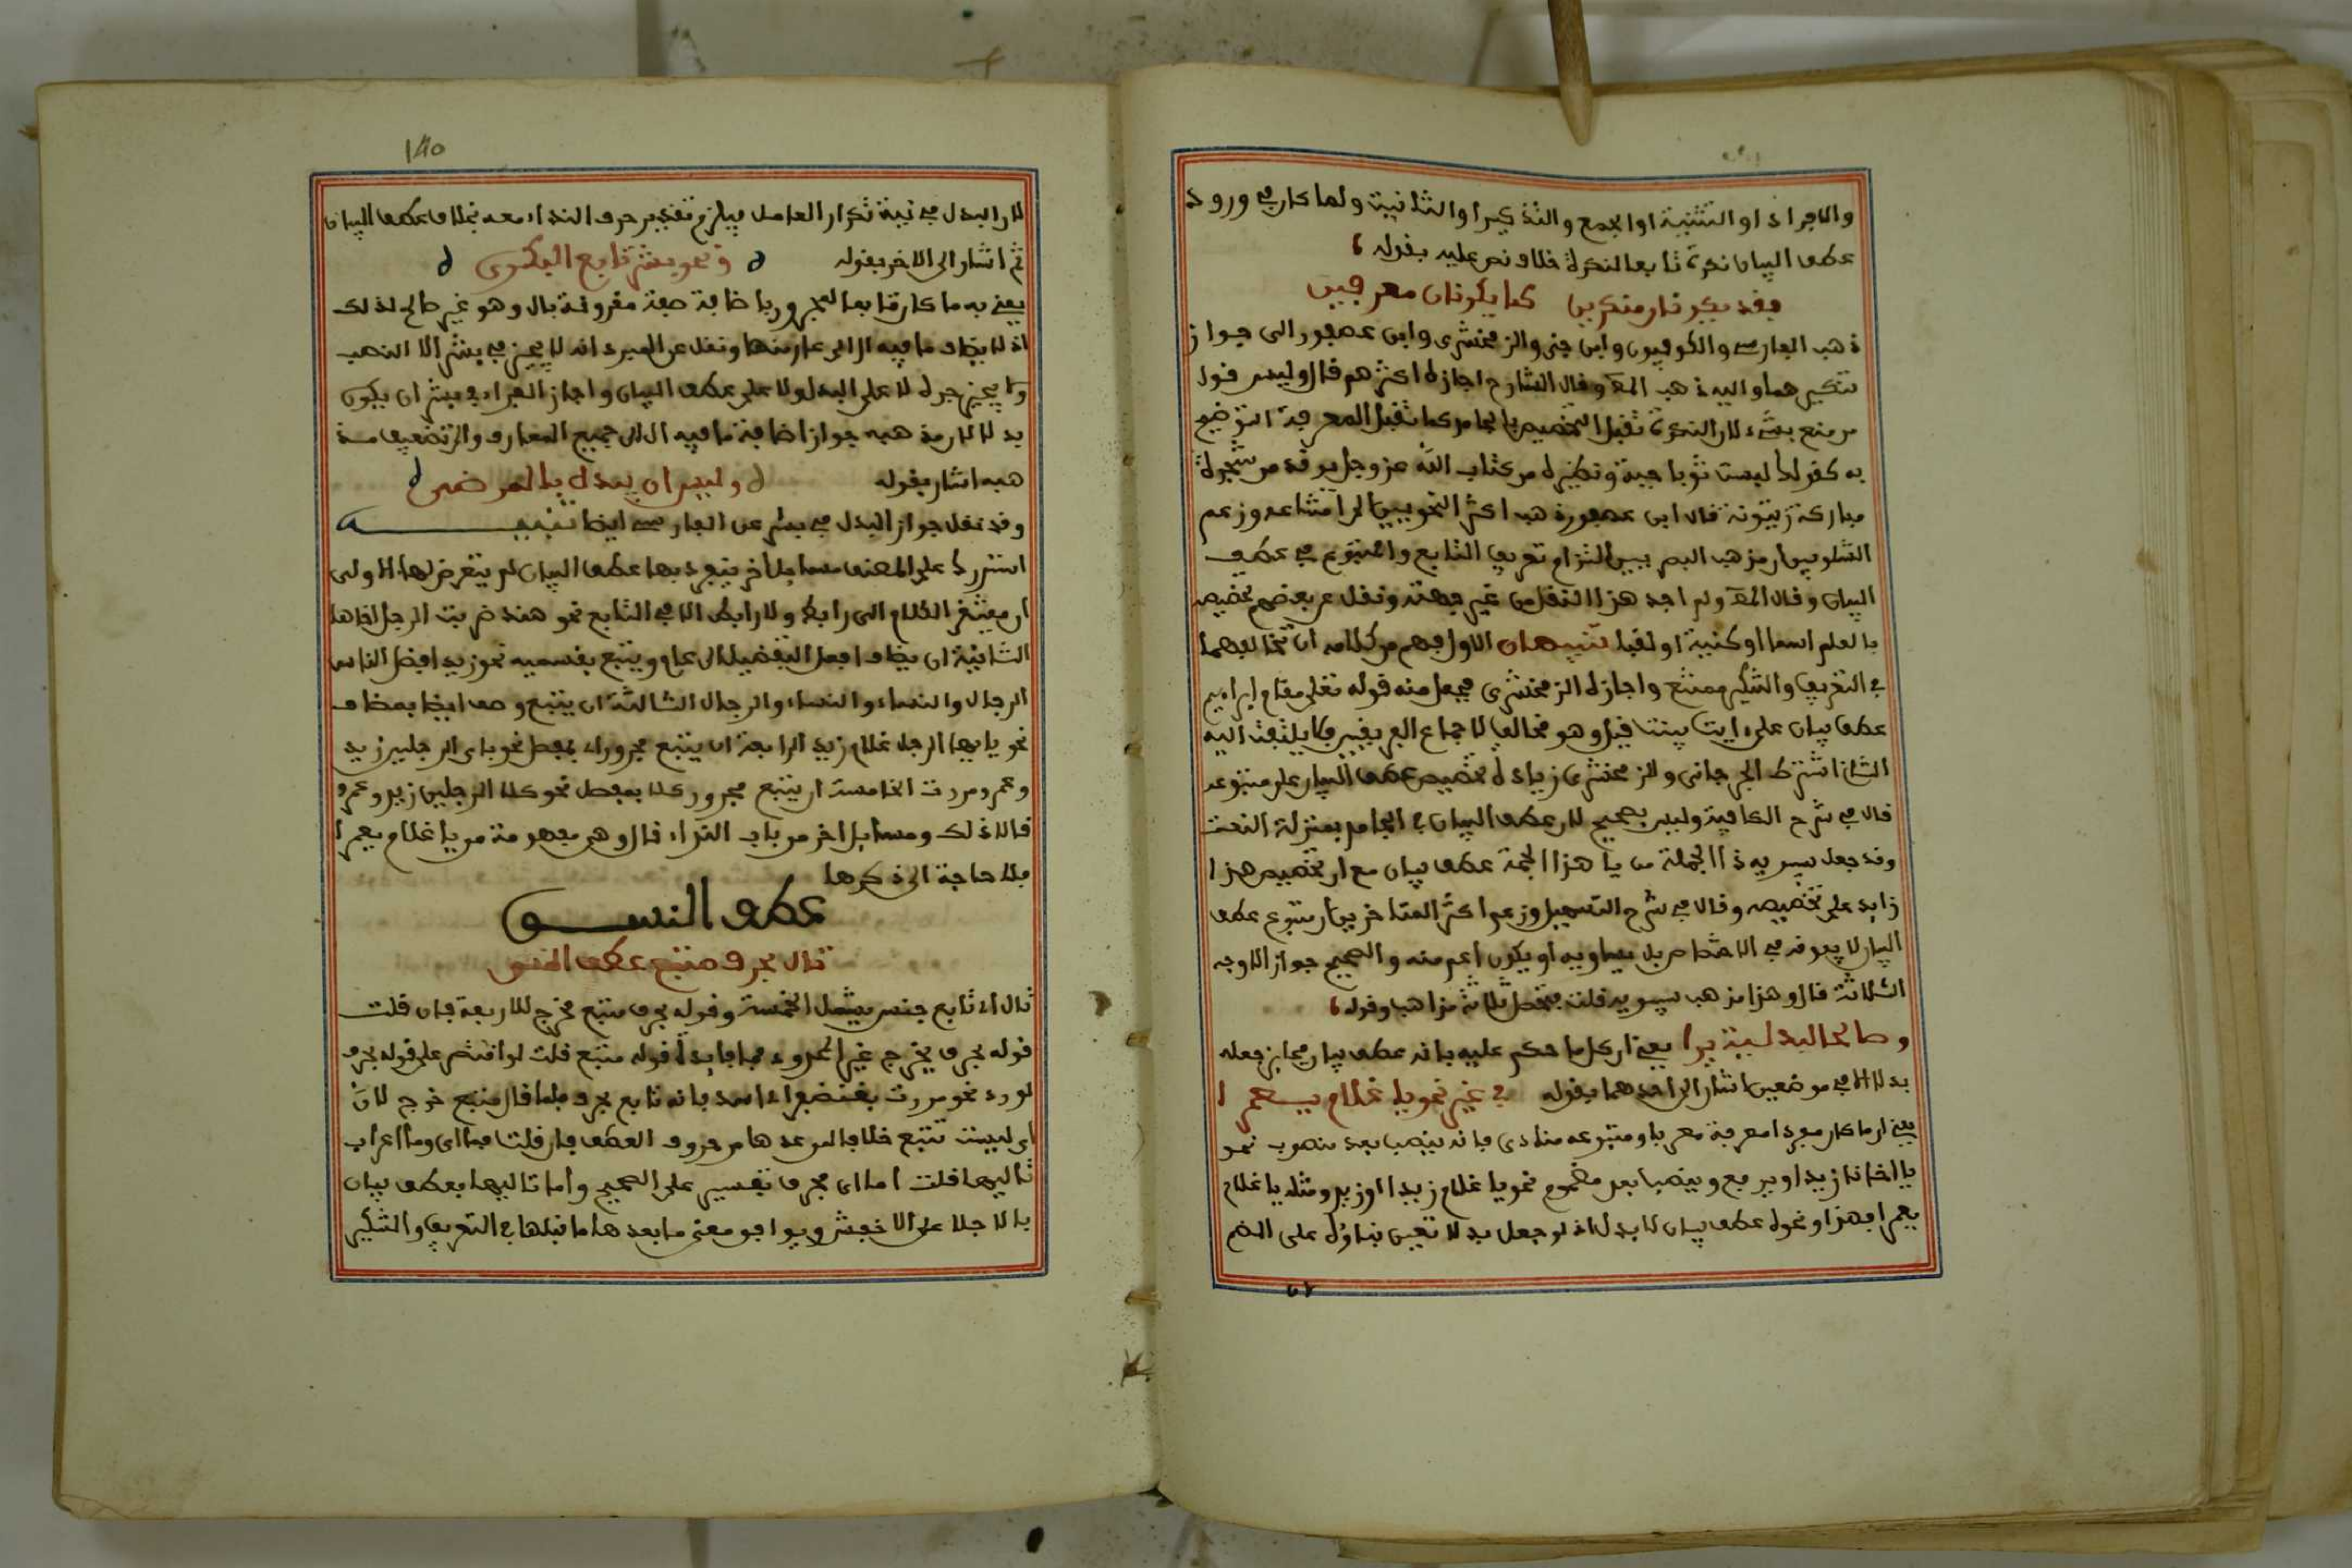 والافراد او التثنية او الجمع والتذكير او التانيث ولما كان في ورود
عطف البيان نكرة تابعا لنكرة خلاف نص عليه بقوله
فقد يكونان منكرين كما يكونان معرفين
ذهب الفارسي والكوفيون وابن جني والزمخشري وابن عصفور الى جواز
تنكيرهما واليه ذهب المص وقال الشارح اجازه اكثرهم قال وليس قول
من منع بشيء لان النكرة تقبل التخصيص بالجامد كما تقبل المعرفة التوضيح
به كقولك لبست ثوبا جبة ونظيره من كتاب الله عز وجل يوقد من شجرة
مباركة زيتونة قال ابن عصفور ذهب اكثر النحويين الى امتناعه وزعم
الشلوبين ان مذهب البصريين التزام تعريف التابع والمتبوع في عطف
البيان وقال المص ولم اجد هذا النقل من غير جهته ونقل عن بعضهم تخصيصه
بالعلم اسما او كنية او لقبا تنبيهان الاول فهم من كلامه ان تخالفهما
في التعريف والتنكير ممتنع واجازه الزمخشري فجعل منه قوله تعلى مقام ابراهيم
عطف بيان على ءايت بينت قيل وهو مخالف لاجماع الفريقين فلا يلتفت اليه
الثان اشترط الجرجاني والزمخشري زيادة تخصيص عطف البيان على متبوعه
قال في شرح الكافية وليس بصحيح لان عطف البيان في الجامد بمنزلة النعت
وقد جعل سيبويه ذا الجمة من يا هذا ذا الجمة عطف بيان مع ان تخصيص هذا
زايد على تخصيصه وقال في شرح التسهيل وزعم اكثر المتاخرين ان متبوع عطف
البيان لا يفوقه في الاختصاص بل يساويه او يكون اعم منه والصحيح جواز الاوجه
الثلاثة قال وهذا مذهب سيبويه قلت فتحصل ثلاثة مذاهب وقوله
وصالحا لبدلية يرا يعني ان كل ما حكم عليه بانه عطف بيان فجايز جعله
بدلا الا في موضعين اشار الى احدهما بقوله في غير نحو يا غلام يعمرا
يعني ان ما كان مفردا معرفة معربا ومتبوعه منادى فانه ينصب بعد منصوب نحو
يا اخانا زيدا ويرفع وينصب بعد مضموم نحو يا غلام زيدا او زيد ومثله يا غلام
يعمرا فهذا ونحوه عطف بيان لا بدل اذ لو جعل بدلا تعين بناؤه على الضم
140
لان البدل في نية تكرار العامل فيلزم تقدير حرف النداء معه بخلاف عطف البيان
ثم اشار الى الاخر بقوله ونحو بشر تابع البكري
يعني به ما كان تابعا لمجرور باضافة صفة مقرونة بال وهو غير صالح لذلك
اذ لا يضاف ما فيه ال الى عار منها ونقل عن المبرد انه لا يجيز في بشر الا النصب
ولا يجيز جره لا على البدل ولا على عطف البيان واجاز الفراء في بشر ان يكون
بدلا لان مذهبه جواز اضافة ما فيه ال الى جميع المعارف والى تضعيف مذ
هبه اشار بقوله وليس ان يبدل بالمرضي
وقد نقل جواز البدل في بشر عن الفارسي ايضا تنبيه
استدرك على المصنف مسايل اخر ينفرد بها عطف البيان لم يتعرض لها الاولى
ان يفتقر الكلام الى رابط ولا رابط الا في التابع نحو هند ضربت الرجل اخاها
الثانية ان يضاف افعل التفضيل الى عام ويتبع بقسميه نحو زيد افضل الناس
الرجال والنساء والنساء والرجال الثالثة ان يتبع وصف اي بمضاف
نحو يا ايها الرجل غلام زيد الرابعة ان يتبع مجرور اي بمفصل نحو باي الرجلين زيد
وعمرو مررت الخامسة ان يتبع مجرور كلا بمفصل نحو كلا الرجلين زيد وعمرو
قالا ذلك ومسايل اخر من باب النداء قال وهي مفهومة من يا غلام يعمرا
فلا حاجة الى ذكرها
عطف النسق
تال بحرف متبع عطف النسق
تال اي تابع جنس يشمل الخمسة وقوله بحرف متبع مخرج للاربعة فان قلت
قوله بحرف يخرج غير المحدود فما فايدة قوله متبع قلت لو اقتصر على قوله بحرف
لورد نحو مررت بغضنفر اي اسد فانه تابع بحرف فلما قال متبع خرج لان
اي ليست تتبع خلافا لمن عدها من حروف العطف فان قلت فما اي وما اعراب
تاليها قلت اما اي فحرف تفسير على الصحيح واما تاليها فعطف بيان
بالاجلا على الاخفى ويوافق معنى ما بعدها ما قبلها في التعريف والتنكير